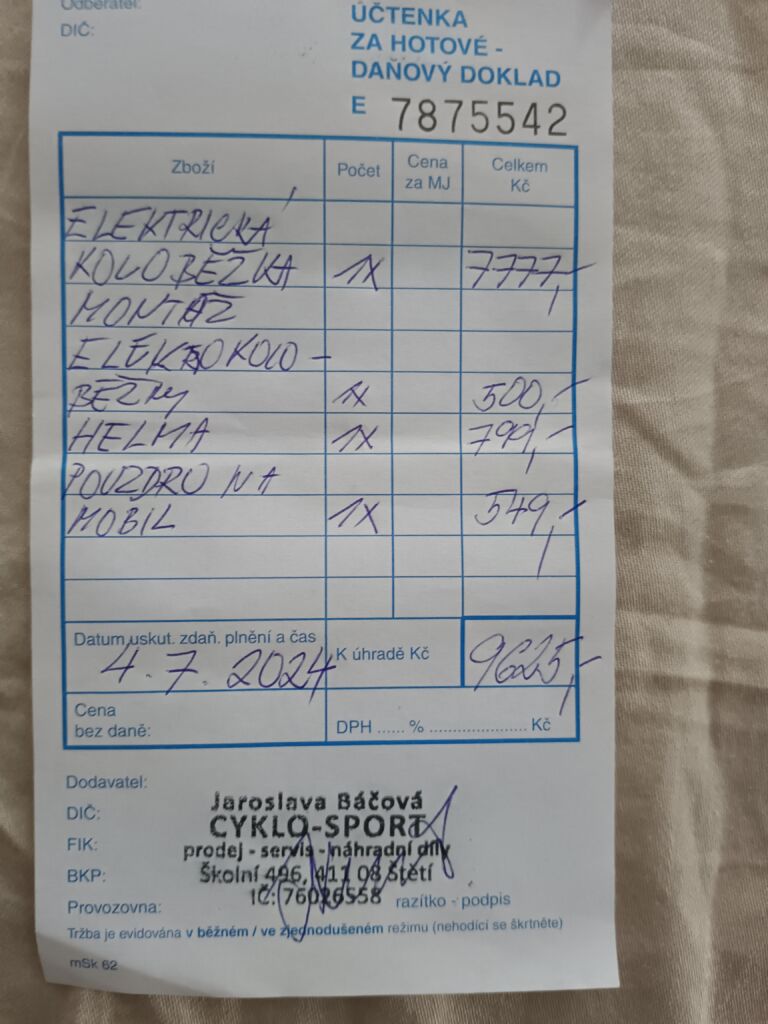 Odběratel:
DIČ:
ÚČTENKA
ZA HOTOVÉ -
DAŇOVÝ DOKLAD
E 7875542
Zboží Počet Cena za MJ Celkem Kč
ELEKTRICKÁ
KOLOBĚŽKA 1X 7777,-
MONTÁŽ
ELEKTROKOLO-
BĚŽKY 1X 500,-
HELMA 1X 799,-
POUZDRO NA
MOBIL 1X 549,-
Datum uskut. zdaň. plnění a čas
4.7.2024 K úhradě Kč 9625,-
Cena
bez daně: DPH ...... % ...................... Kč
Dodavatel:
DIČ:
FIK:
BKP:
Provozovna:
Jaroslava Báčová
CYKLO-SPORT
prodej - servis - náhradní díly
Školní 496, 411 08 Štětí
IČ: 76026558
razítko - podpis
Tržba je evidována v běžném / ve zjednodušeném režimu (nehodící se škrtněte)
mSk 62